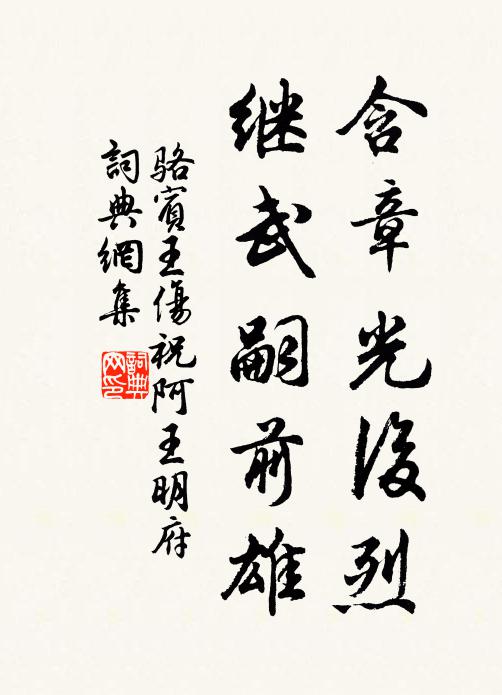 含章光後烈
继武嗣前雄
駱賓王傷祝阿王明府
詞典網集
詞典网印